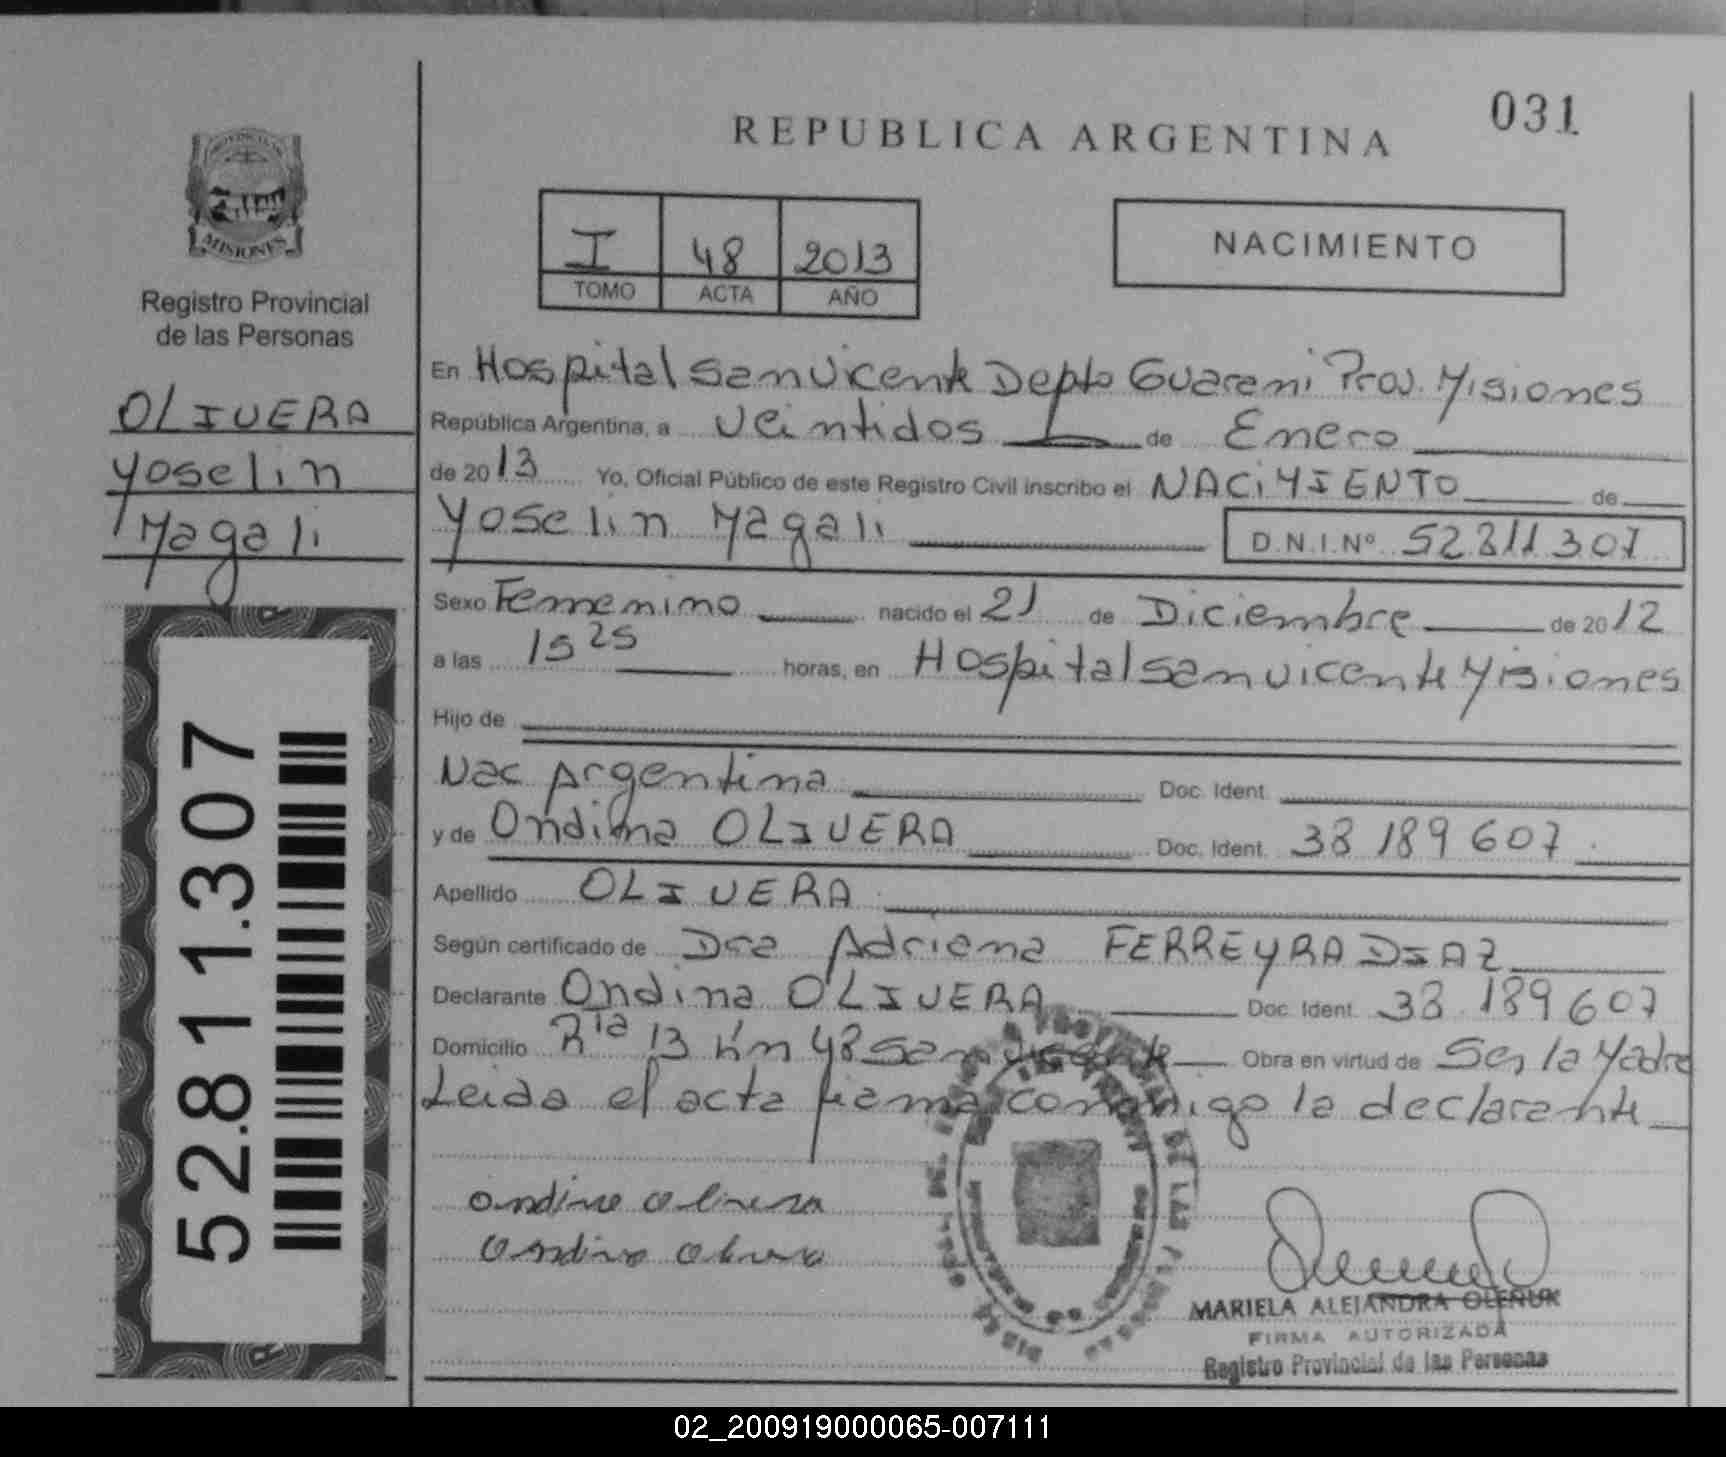 031
REPUBLICA ARGENTINA
I 48 2013
TOMO ACTA AÑO
NACIMIENTO
MISIONES
Registro Provincial
de las Personas
OLIVERA
Yoselin
Magali
52.811.307
En Hospital San Vicente Depto Guarani Prov. Misiones
República Argentina, a veintidos de Enero
de 2013 Yo, Oficial Público de este Registro Civil inscribo el NACIMIENTO de
Yoselin Magali D.N.I.Nº 52.811.307
Sexo Femenino nacido el 21 de Diciembre de 2012
a las 15 25 horas, en Hospital San Vicente Misiones
Hijo de
Nac Argentina Doc. Ident.
y de Ondina OLIVERA Doc. Ident. 38 189 607
Apellido OLIVERA
Según certificado de Dra Adriana FERREYRA DIAZ
Declarante Ondina OLIVERA Doc. Ident. 38 189 607
Domicilio Rta 13 Km 48 San Vicente Obra en virtud de Ser la Madre
Leida el acta firma conmigo la declarante
ondina olivera
ondina olivera
MARIELA ALEJANDRA OLEÑUK
FIRMA AUTORIZADA
Registro Provincial de las Personas
02_200919000065-007111